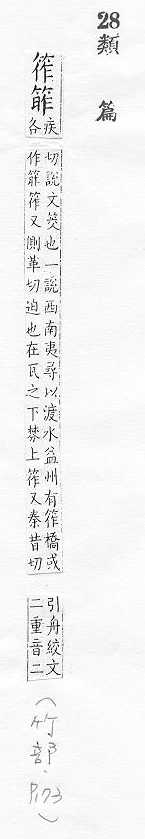 28類篇
筰䉅
疾各
切說文筊也一說西南夷尋以渡水益州有筰橋或
作䉅筰又側革切迫也在瓦之下棼上筰又秦昔切
引舟絞文
二重音二
(竹部.P.173)